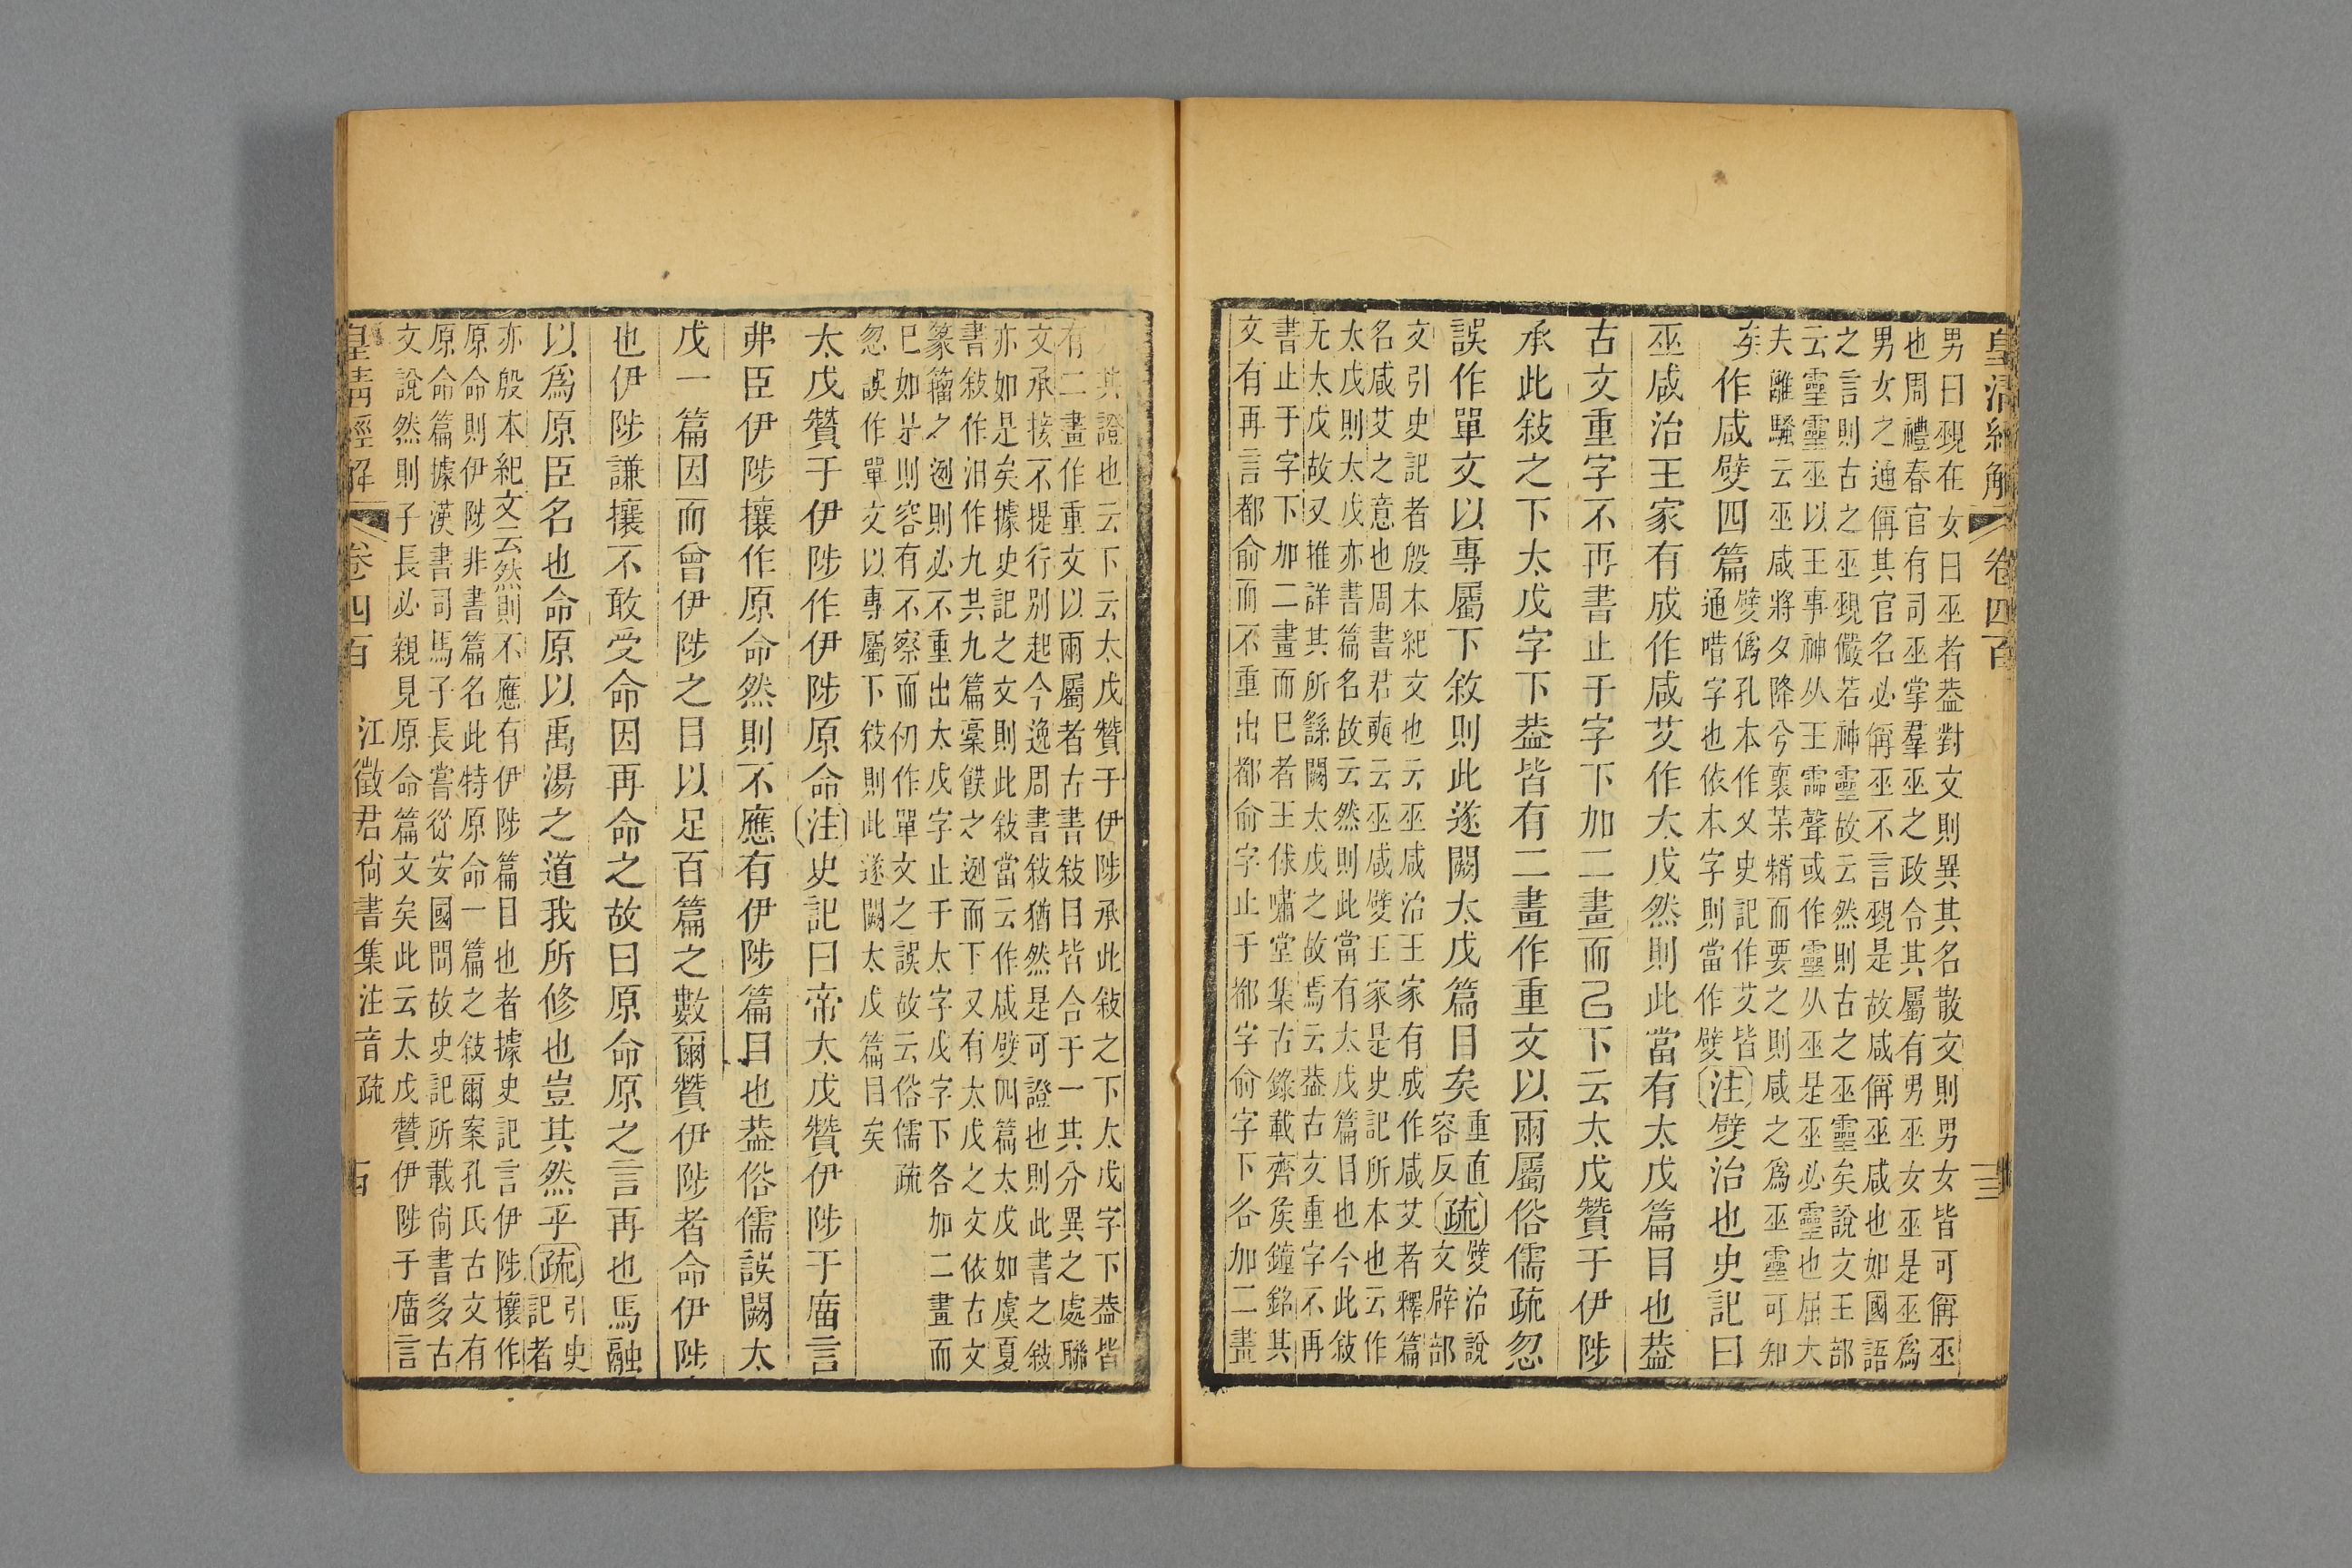 皇清經解 卷四百 三
男曰覡在女曰巫者葢對文則異其名散文則男女皆可偁巫
也周禮春官有司巫掌羣巫之政令其屬有男巫女巫是巫爲
男女之通偁其官名必偁巫不言覡是故咸偁巫咸也如國語
之言則古之巫覡儼若神靈故云然則古之巫靈矣說文王部
云靈靈巫以王事神从王霝聲或作靈从巫是巫必靈也屈大
夫離騷云巫咸將夕降兮襄茱糈而要之則咸之爲巫靈可知
矣作咸嬖四篇
嬖僞孔本作乂史記作艾皆
通唶字也依本字則當作嬖
注嬖治也史記曰
巫咸治王家有成作咸艾作太戊然則此當有太戊篇目也葢
古文重字不再書止于字下加二畫而已下云太戊贊于伊陟
承此敍之下太戊字下葢皆有二畫作重文以兩屬俗儒疏忽
誤作單文以專屬下敘則此遂闕太戊篇目矣
重直
容反
疏
嬖治說
文辟部
文引史記者殷本紀文也云巫咸治王家有成作咸艾者釋篇
名咸艾之意也周書君奭云巫咸嬖王家是史記所本也云作
太戊則太戊亦書篇名故云然則此當有太戊篇目也今此敍
无太戊故又推詳其所繇闕太戊之故焉云葢古文重字不再
書止于字下加二畫而已者王俅嘯堂集古錄載齊侯鐘銘其
文有再言都俞而不重出都俞字止于都字俞字下各加二畫
其證也云下云太戊贊于伊陟承此敍之下太戊字下葢皆
有二畫作重文以兩屬者古書敍目皆合于一其分異之處聯
文承接不提行別起今逸周書敍猶然是可證也則此書之敍
亦如是矣據史記之文則此敍當云作咸嬖四篇太戊如虞夏
書敍作汨作九共九篇槀飫之迾而下又有太戊之文依古文
篆籀之迾則必不重出太戊字止于太字戊字下各加二畫而
已如是則容有不察而仞作單文之誤故云俗儒疏
忽誤作單文以專屬下敍則此遂闕太戊篇目矣
太戊贊于伊陟作伊陟原命注史記曰帝太戊贊伊陟于廟言
弗臣伊陟攘作原命然則不應有伊陟篇目也葢俗儒誤闕太
戊一篇因而曾伊陟之目以足百篇之數爾贊伊陟者命伊陟
也伊陟謙攘不敢受命因再命之故曰原命原之言再也馬融
以爲原臣名也命原以禹湯之道我所修也豈其然乎疏
引史
記者
亦殷本紀文云然則不應有伊陟篇目也者據史記言伊陟攘作
原命則伊陟非書篇名此特原命一篇之敍爾案孔氏古文有
原命篇據漢書司馬子長嘗從安國問故史記所載尙書多古
文說然則子長必親見原命篇文矣此云太戊贊伊陟于廟言
皇清經解 卷四百 江徵君尙書集注音疏